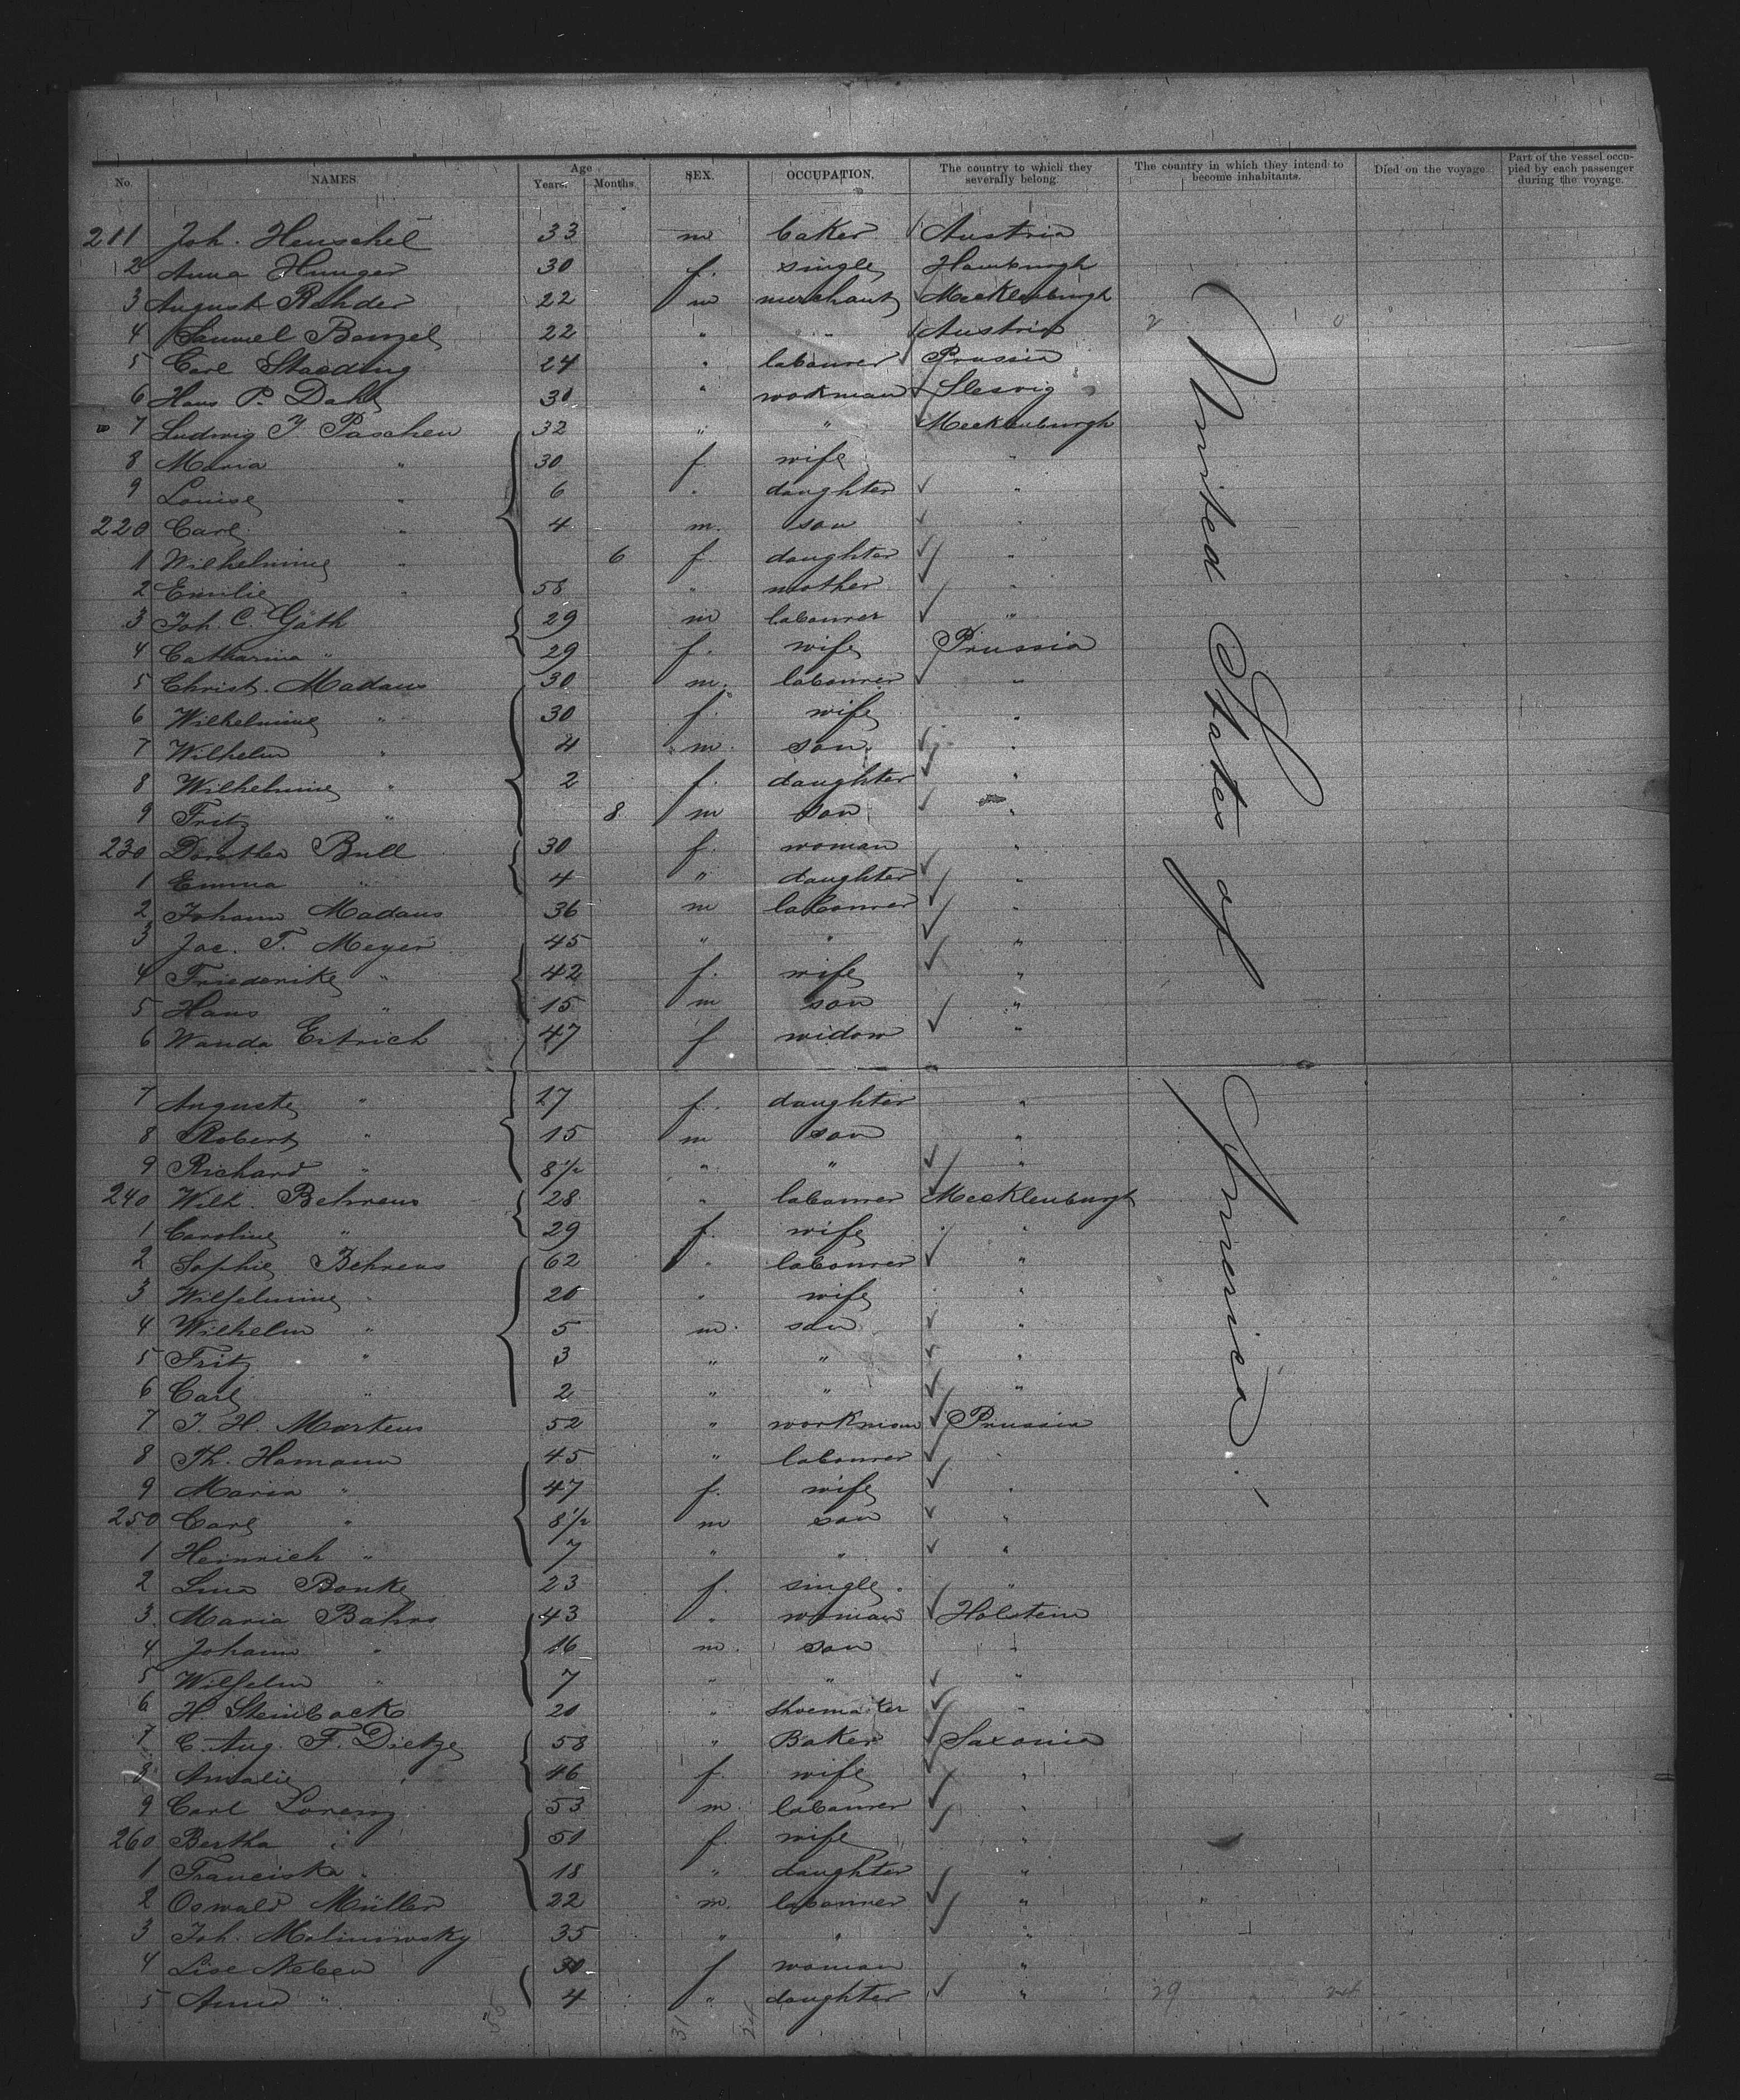 No. NAMES. Age Years. Months. SEX. OCCUPATION. The country to which they severally belong. The country in which they intend to become inhabitants. Died on the voyage. Part of the vessel occupied by each passenger during the voyage.
211 Joh. Henschel 33 m baker Austria
2 Anna Hunger 30 f. single Hamburgh
3 August Rohder 22 m merchant Mecklenburgh
4 Samuel 22 " " Austria
5 Carl 24 " labourer Prussia
6 Hans P. Dahl 30 " workman Slesvig
7 Ludwig J Paschen 32 " " Mecklenburgh
8 Maria " 30 f wife "
9 Louise " 6 " daughter "
220 Carl " 4 m. son "
1 Wilhelmine " 6 f daughter "
2 Emilie " 58 " mother "
3 Joh. C. Gäth 29 m labourer "
4 Catharina " 29 f. wife Prussia
5 Christ. Madaus 30 m. labourer "
6 Wilhelmine " 30 f. wife "
7 Wilhelm " 4 m. son "
8 Wilhelmine " 2 f. daughter "
9 Fritz " 8 m son "
230 Dorothea Bull 30 f. woman "
1 Emma " 4 " daughter "
2 Johann Madaus 36 m labourer "
3 Joc. T. Meyer 45 " " "
4 Friederike " 42 f. wife "
5 Hans " 15 m son "
6 Wanda Eitrich 47 f widow "
7 Auguste " 17 f. daughter "
8 Robert " 15 m son "
9 Richard " 8 1/2 " " "
240 Wilh. Behrens 28 " labourer Mecklenburgh
1 Caroline " 29 f. wife "
2 Sophie Behrens 62 " labourer "
3 Wilhelmine " 26 " wife "
4 Wilhelm " 5 m. son "
5 Fritz " 3 " " "
6 Carl " 2 " " "
7 J. H. Martens 52 " workman Prussia
8 Th. Hamann 45 " labourer "
9 Maria " 47 f. wife "
250 Carl " 8 1/2 m son "
1 Heinrich " 7 " " "
2 Lina Bonke 23 f. single "
3 Maria Bahrs 43 " woman Holstein
4 Johann " 16 m. son "
5 Wilhelm " 7 " " "
6 H Steinbock 20 " shoemaker "
7 C. Aug. F. Dietze 58 " Baker Saxonia
8 Amalie " 46 f. wife "
9 Carl Lorenz 53 m. labourer "
260 Bertha " 51 f. wife "
1 Franciska " 18 " daughter "
2 Oswald Müller 22 m. labourer "
3 Joh. Malinowsky 35 " " "
4 Lise Neben 30 f woman "
5 Anna " 4 " daughter "
United States of America.
29
31